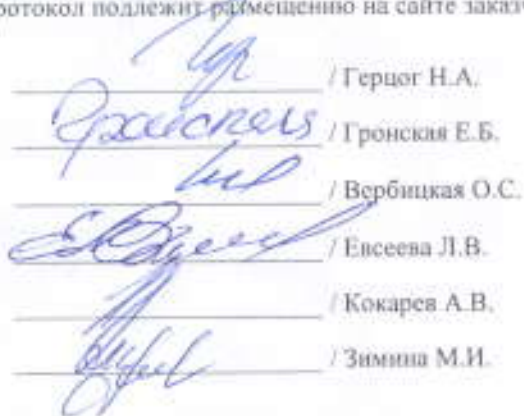 ротокол подлежит размещению на сайте заказч
/ Герцог Н.А.
/ Гронская Е.Б.
/ Вербицкая О.С.
/ Евсеева Л.В.
/ Кокарев А.В.
/ Зимина М.И.